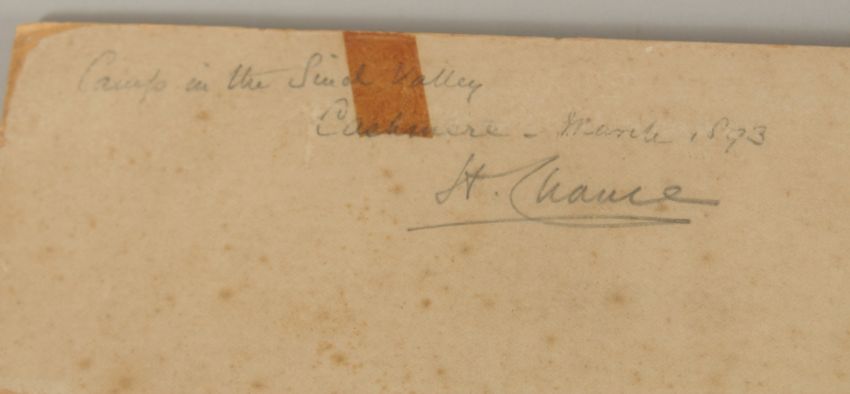 Camp in the Sind Valley
Cashmere - March 1893
H. Chance